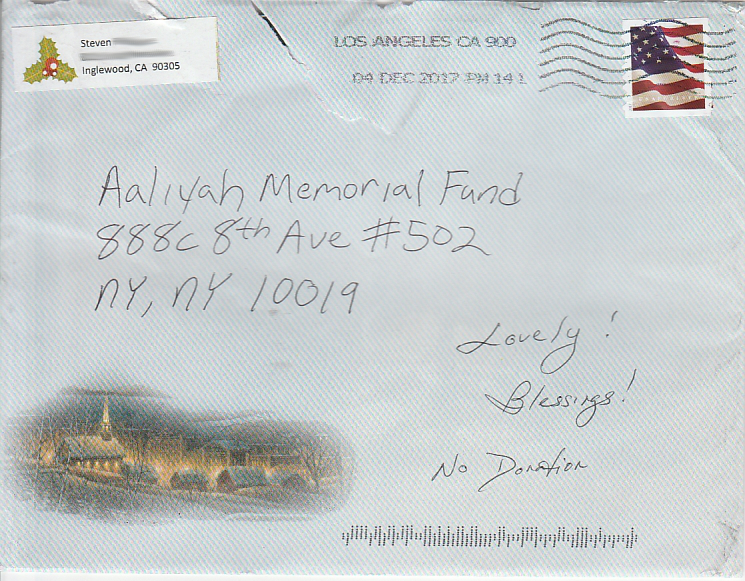 Steven
Inglewood, CA 90305
LOS ANGELES CA 900
04 DEC 2017 PM 14 L
Aaliyah Memorial Fund
888c 8th Ave #502
NY, NY 10019
Lovely!
Blessings!
No Donation